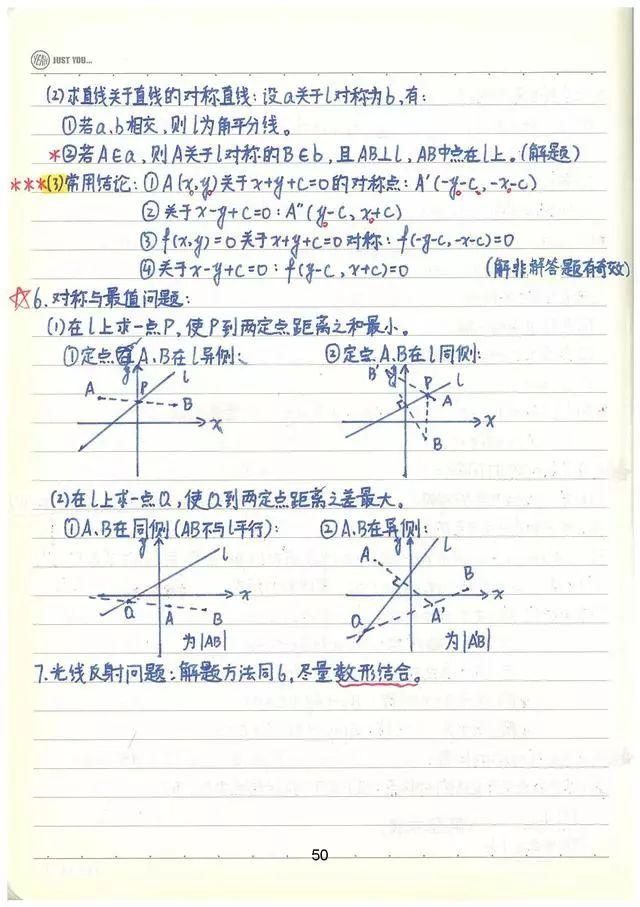 YEAH JUST YOU...
(2)求直线关于直线的对称直线：设a关于l对称为b，有：
①若a、b相交，则l为角平分线。
*②若A∈a，则A关于l对称的B∈b，且AB⊥l，AB中点在l上。(解题)
***(3)常用结论：①A(x,y)关于x+y+C=0的对称点：A'(-y-c,-x-c)
②关于x-y+C=0：A''(y-c,x+c)
③f(x,y)=0关于x+y+c=0对称：f(-y-c,-x-c)=0
④关于x-y+c=0：f(y-c,x+c)=0 (解非解答题有奇效)
☆6.对称与最值问题：
(1)在l上求一点P，使P到两定点距离之和最小。
①定点A、B在l异侧： ②定点A、B在l同侧：
y A P l B x
B' y P l A x B
(2)在l上求一点Q，使Q到两定点距离之差最大。
①A、B在同侧(AB不与l平行)： ②A、B在异侧：
y l x Q A B
A y l B x A' Q
为|AB| 为|A'B|
7.光线反射问题：解题方法同6，尽量数形结合。
50